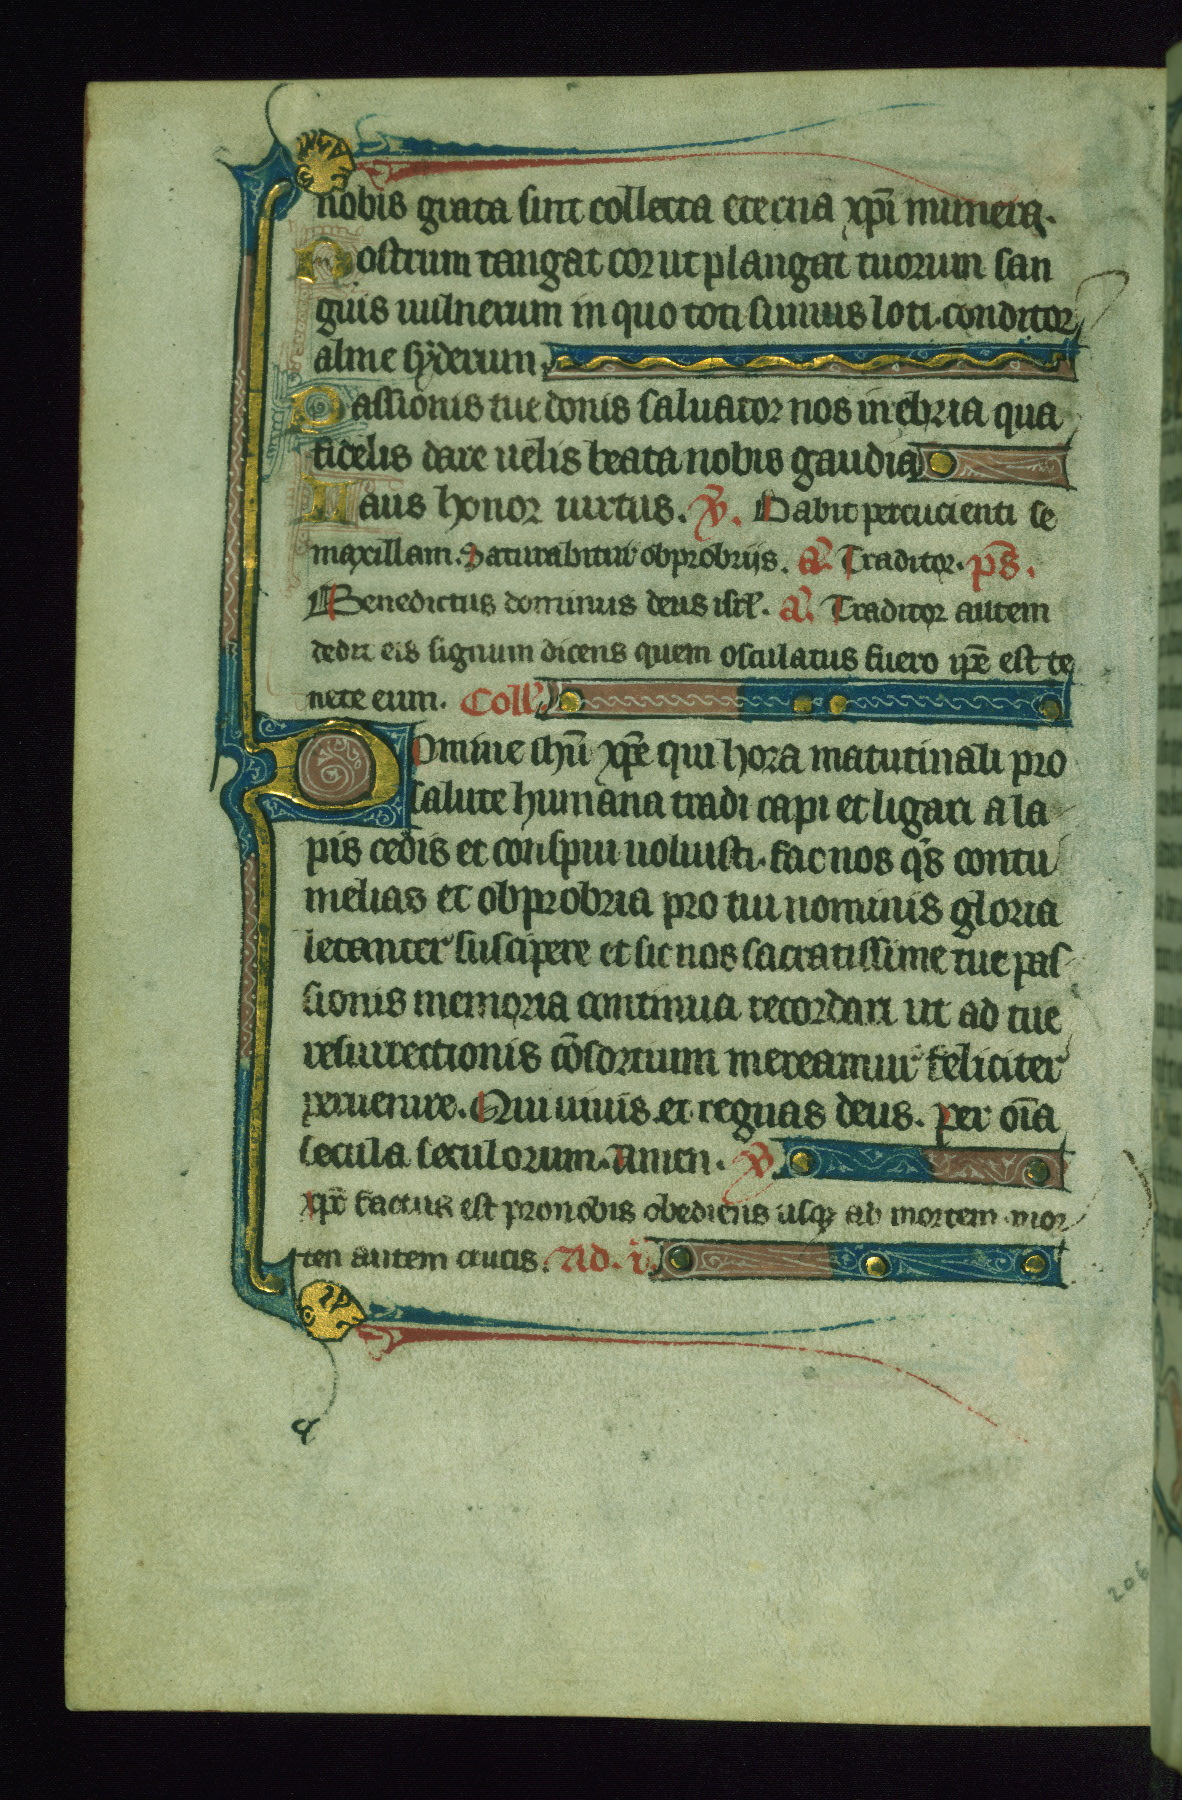 nobis grata sint collecta eterna xp̄i munera.
Nostrum tangat cor ut plangat tuorum san
guis uulnerum in quo toti sumus loti. conditor
alme syderum.
Passionis tue donis saluator nos inebria qua
fidelis dare uelis beata nobis gaudia
Laus honor uirtus. V̄. Dabit percucienti se
maxillam. Saturabitur obprobriis. a᷒. Traditor. ps̄.
Benedictus dominus deus isrł. a᷒. Traditor autem
dedit eis signum dicens quem osculatus fuero ip̄e est te
nete eum. Coll
Domine ihū xp̄e qui hora matutinali pro
salute humana tradi capi et ligari ala
pis cedis et conspui uoluisti. fac nos qs̄ contu
melias et obprobria pro tui nominis gloria
letanter suscipere et sic nos sacratissime tue pas
sionis memoria continua recordari ut ad tue
resurrectionis cōsortium mereamur feliciter
peruenire. Qui uiuis et regnas deus. per oīa
secula seculorum. Amen. V
xp̄c factus est pro nobis obediens usqꝫ ad mortem mor
tem autem crucis. Ad. i.
206